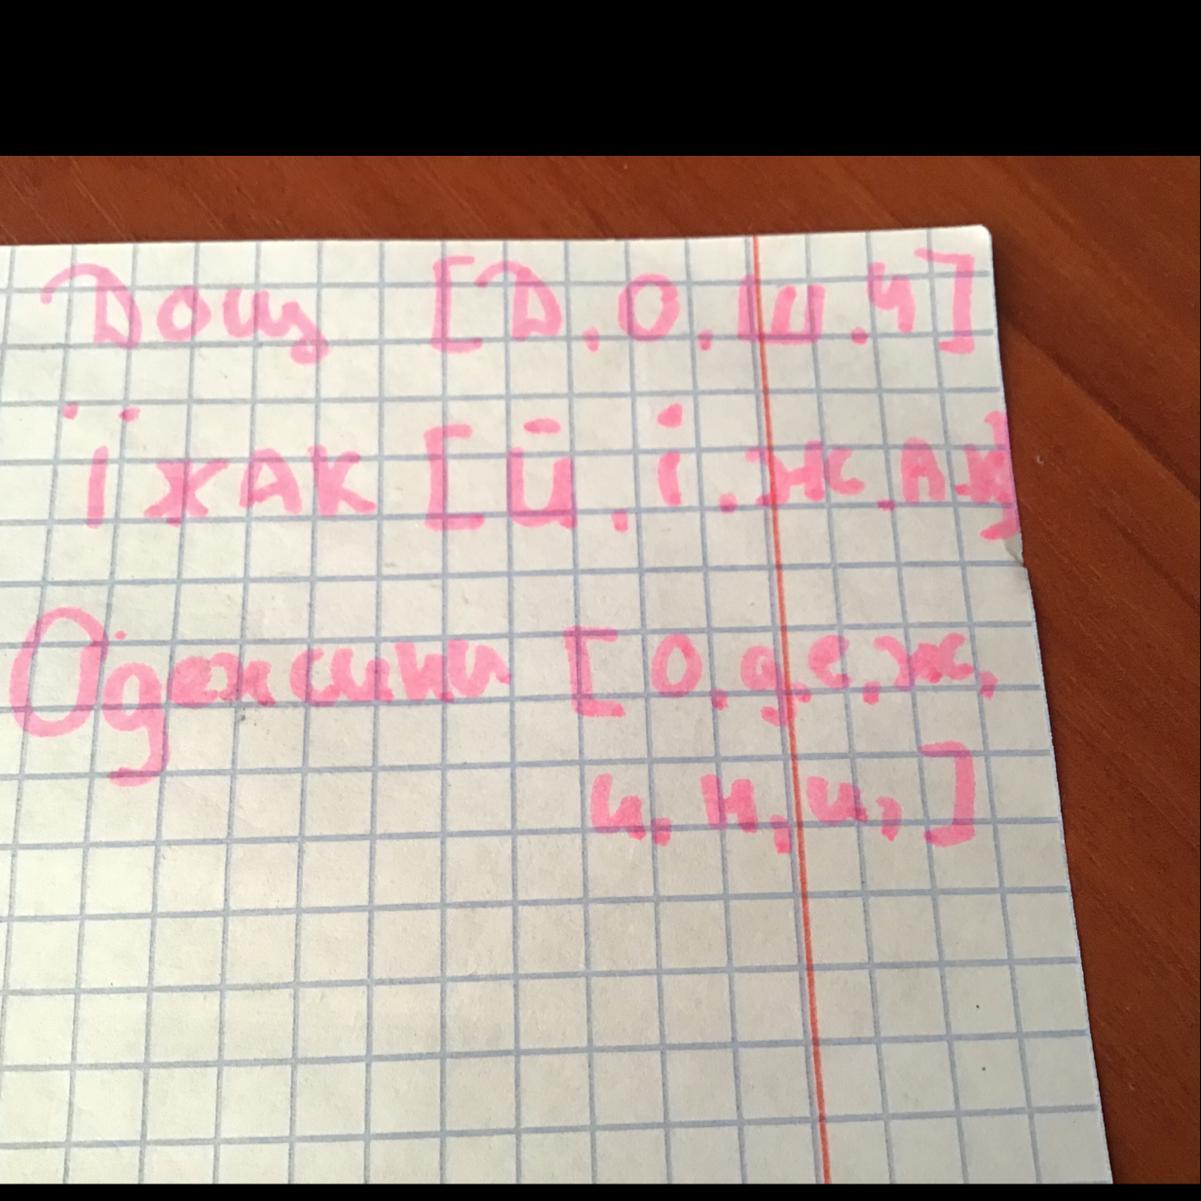 Дощ [Д.О.Ш.Ч]
їжАК [й.і.ж.А.К]
Одежини [О.д.е.ж,
и.н,и,]